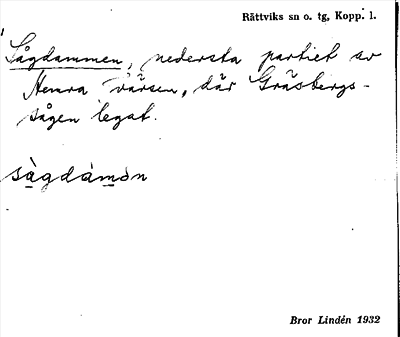 Rättviks sn o. tg, Kopp. l.
Sågdammen, nedersta partiet av
Hemra värsen, där Gräsbergs-
sågen legat.
sàgdàmơn
Bror Lindén 1932